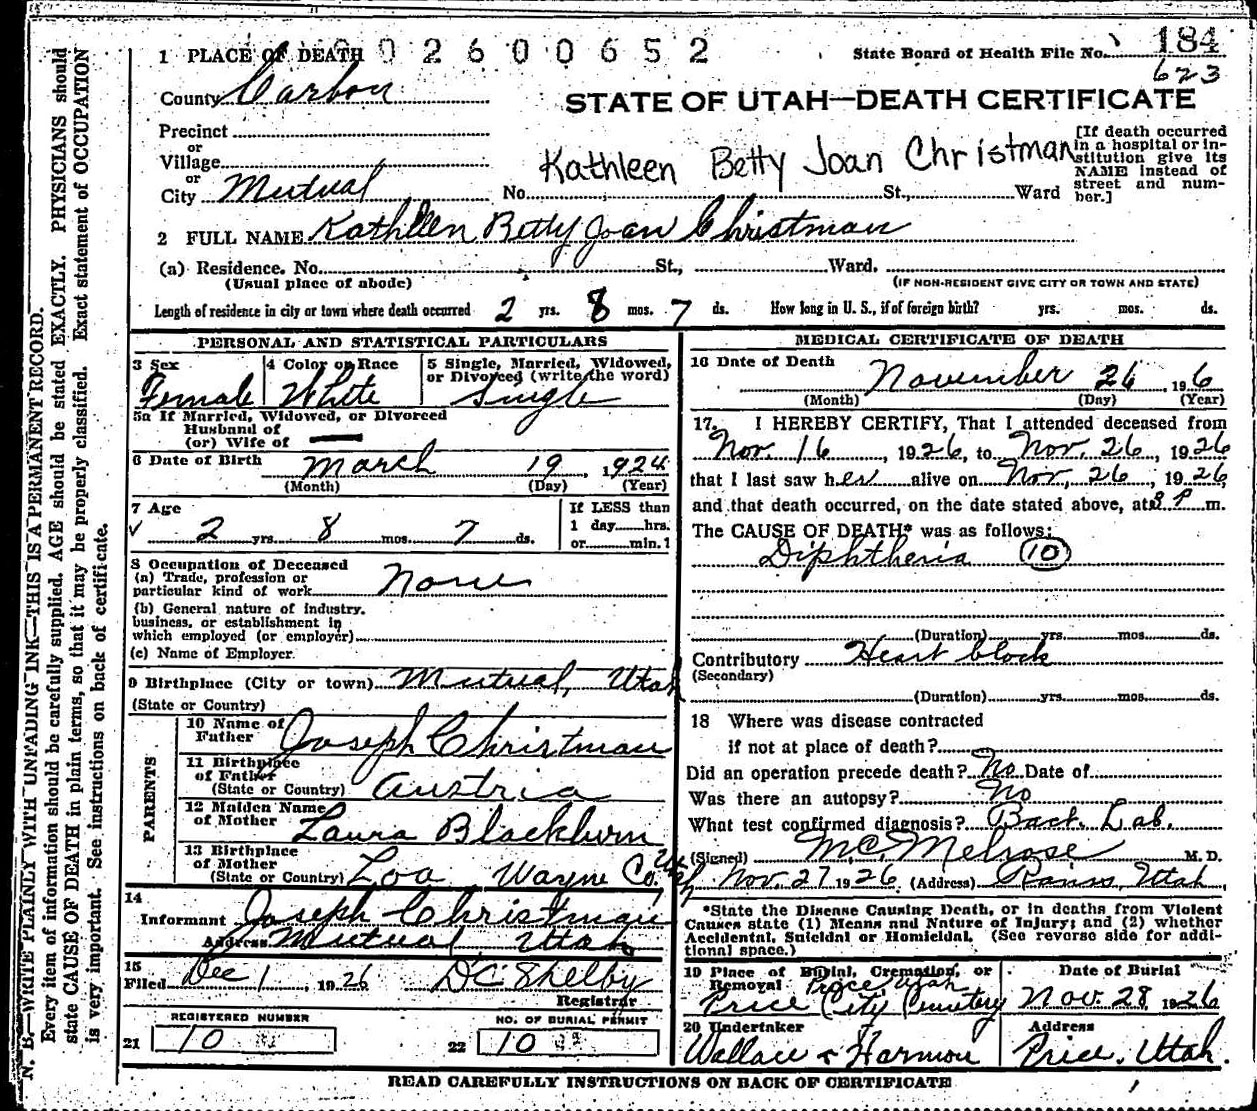 1 PLACE OF DEATH 002600652 State Board of Health File No. 184
623
County Carbon
STATE OF UTAH—DEATH CERTIFICATE
Precinct
or
Village
or
City Mutual No. St., Ward
Kathleen Betty Joan Christman
[If death occurred in a hospital or in-
stitution give its
NAME instead of
street and num-
ber.]
2 FULL NAME Kathleen Betty Joan Christman
(a) Residence. No. St., Ward.
(Usual place of abode) (IF NON-RESIDENT GIVE CITY OR TOWN AND STATE)
Length of residence in city or town where death occurred 2 yrs. 8 mos. 7 ds. How long in U. S., if of foreign birth? yrs. mos. ds.
PERSONAL AND STATISTICAL PARTICULARS
3 Sex Female
4 Color or Race White
5 Single, Married, Widowed,
or Divorced (write the word)
Single
5a If Married, Widowed, or Divorced
Husband of
(or) Wife of
6 Date of Birth March 19, 1924
(Month) (Day) (Year)
7 Age
2 yrs. 8 mos. 7 ds.
If LESS than
1 day hrs.
or min.1
8 Occupation of Deceased
(a) Trade, profession or
particular kind of work None
(b) General nature of industry.
business, or establishment in
which employed (or employer)
(c) Name of Employer.
9 Birthplace (City or town) Mutual, Utah
(State or Country)
PARENTS
10 Name of
Father Joseph Christman
11 Birthplace
of Father
(State or Country) Austria
12 Maiden Name
of Mother Laura Blackburn
13 Birthplace
of Mother
(State or Country) Loa Wayne Co. Utah
14
Informant Joseph Christman
Address Mutual Utah
15
Filed Dec 1, 1926 DC Shelby
Registrar
REGISTERED NUMBER
21 10
NO. OF BURIAL PERMIT
22 10
MEDICAL CERTIFICATE OF DEATH
16 Date of Death November 26, 1926
(Month) (Day) (Year)
17. I HEREBY CERTIFY, That I attended deceased from
Nov. 16, 1926, to Nov. 26, 1926
that I last saw her alive on Nov. 26, 1926,
and that death occurred, on the date stated above, at 8 P m.
The CAUSE OF DEATH* was as follows:
Diphtheria (10)
(Duration) yrs. mos. ds.
Contributory Heart block
(Secondary)
(Duration) yrs. mos. ds.
18 Where was disease contracted
if not at place of death?
Did an operation precede death? No Date of
Was there an autopsy? No
What test confirmed diagnosis? Bact. Lab.
(Signed) M.C. Melrose M. D.
Nov. 27 1926 (Address) Rains, Utah
*State the Disease Causing Death, or in deaths from Violent
Causes state (1) Means and Nature of Injury; and (2) whether
Accidental, Suicidal or Homicidal. (See reverse side for addi-
tional space.)
19 Place of Burial, Cremation, or
Removal Price Utah
Price City Cemetery
Date of Burial
Nov. 28, 1926
20 Undertaker
Wallace & Harmon
Address
Price, Utah.
READ CAREFULLY INSTRUCTIONS ON BACK OF CERTIFICATE
N. B.—WRITE PLAINLY WITH UNFADING INK—THIS IS A PERMANENT RECORD.
Every item of information should be carefully supplied. AGE should be stated EXACTLY. PHYSICIANS should
state CAUSE OF DEATH in plain terms, so that it may be properly classified. Exact statement of OCCUPATION
is very important. See instructions on back of certificate.